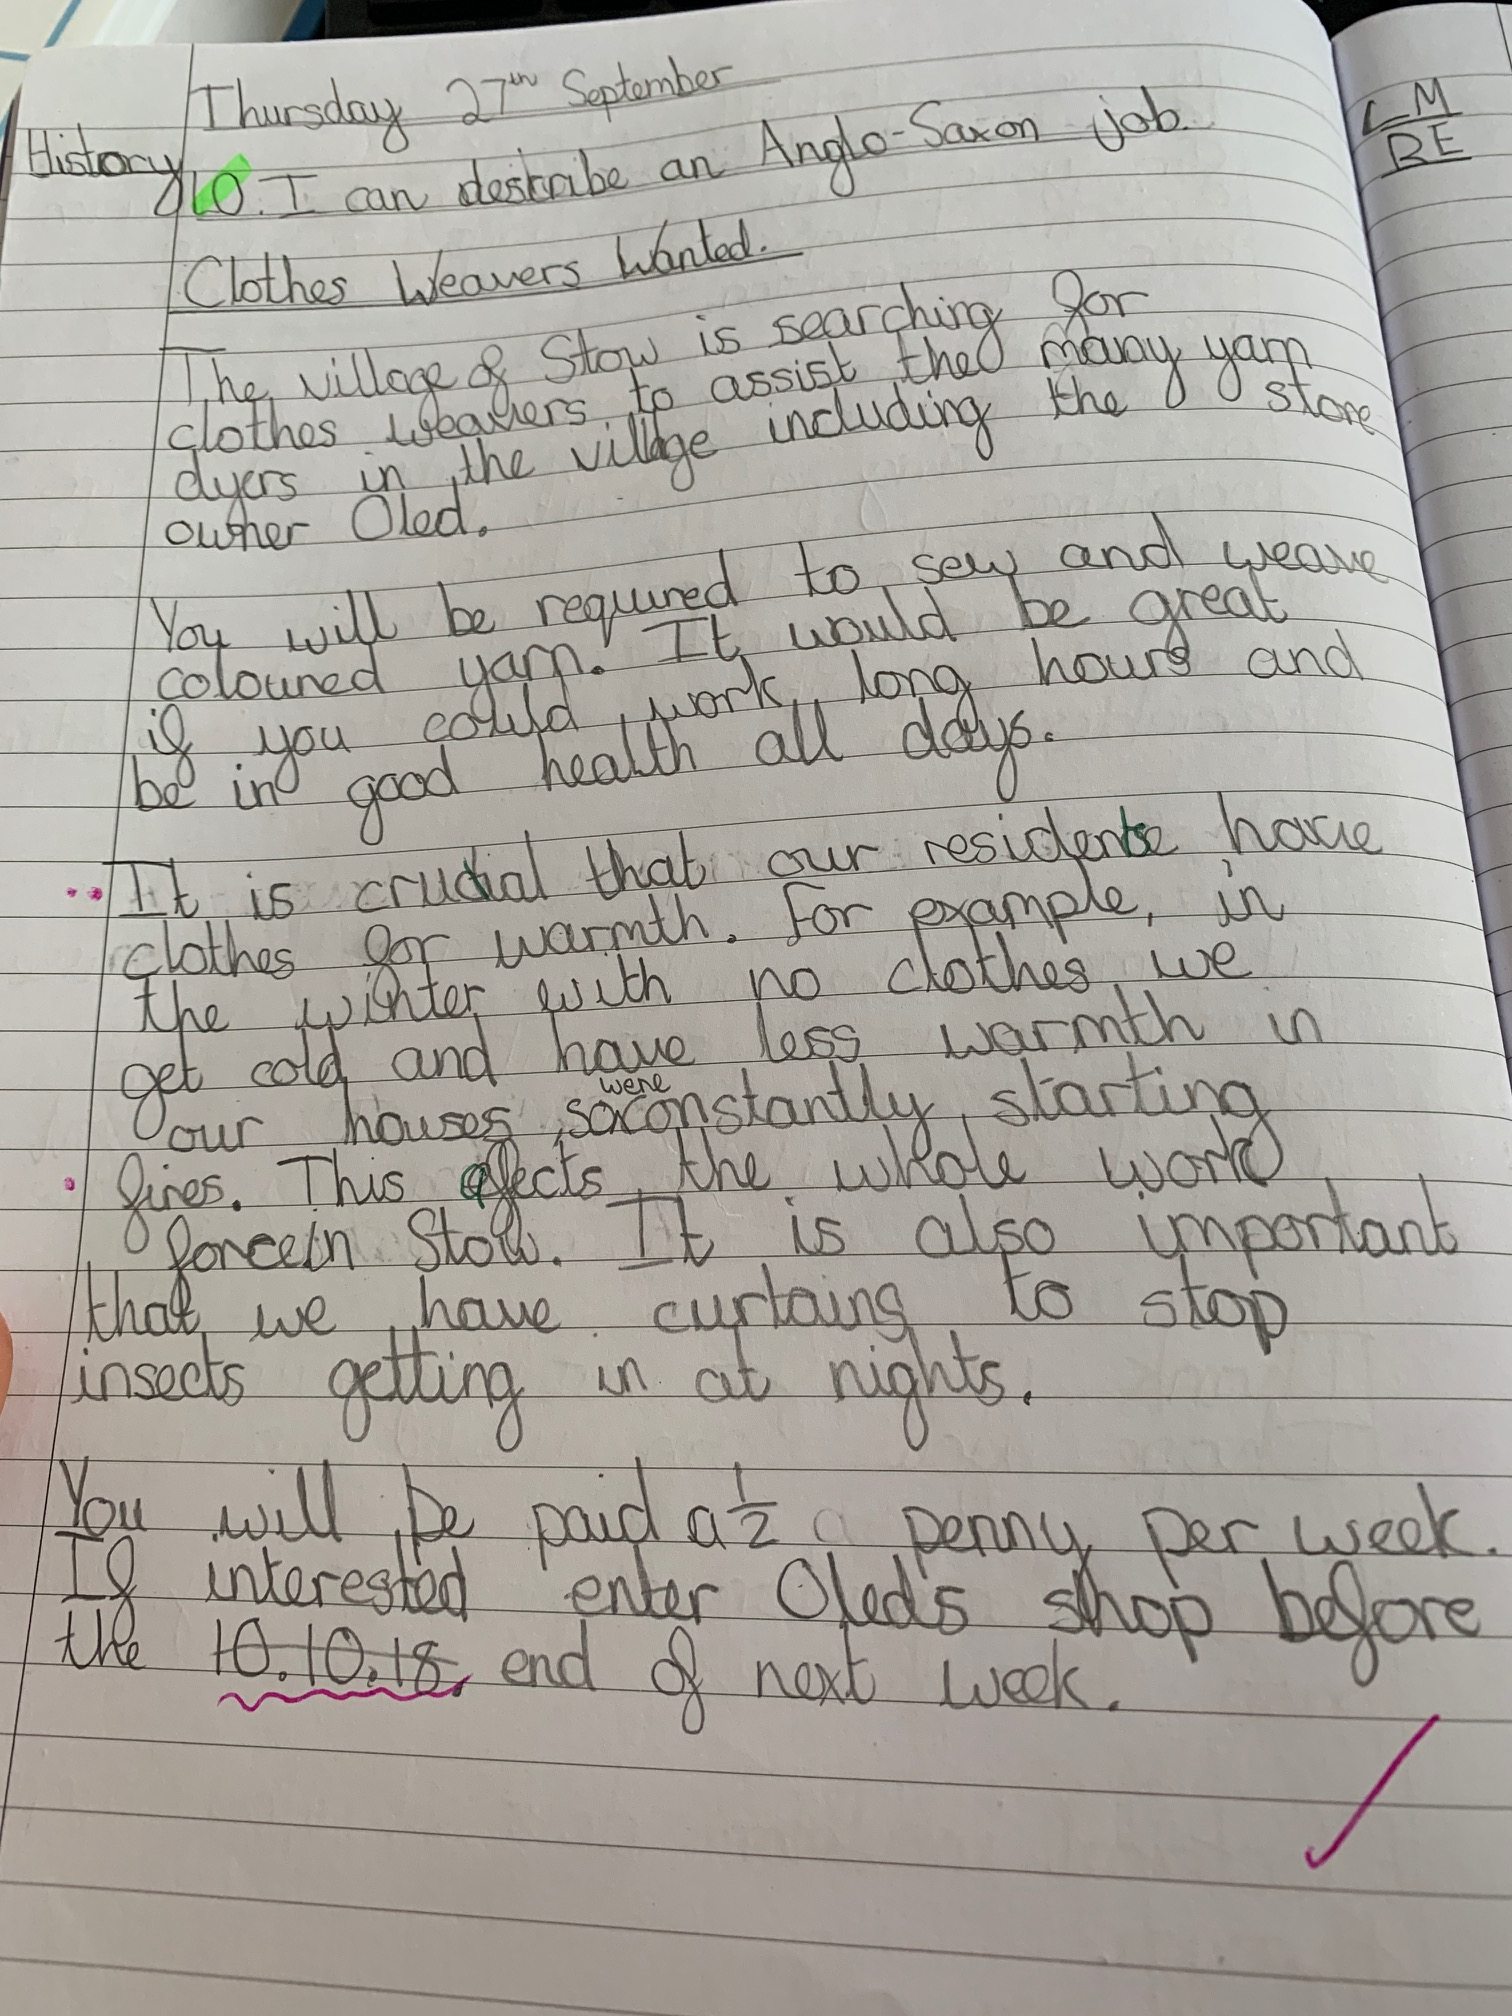 Thursday 27th September
History
LO. I can describe an Anglo-Saxon job.
Clothes Weavers Wanted.
The village of Stow is searching for
clothes weavers to assist the many yarn
dyers in the village including the store
owner Oled.
You will be required to sew and weave
coloured yarn. It would be great
if you could work long hours and
be in good health all days.
It is crucial that our residents have
clothes for warmth. For example, in
the winter with no clothes we
get cold and have less warmth in
our houses, so were constantly starting
fires. This affects the whole work
force in Stow. It is also important
that we have curtains to stop
insects getting in at nights.
You will be paid a ½ penny per week.
If interested enter Oled's shop before
the 10.10.18. end of next week.
LM
BE